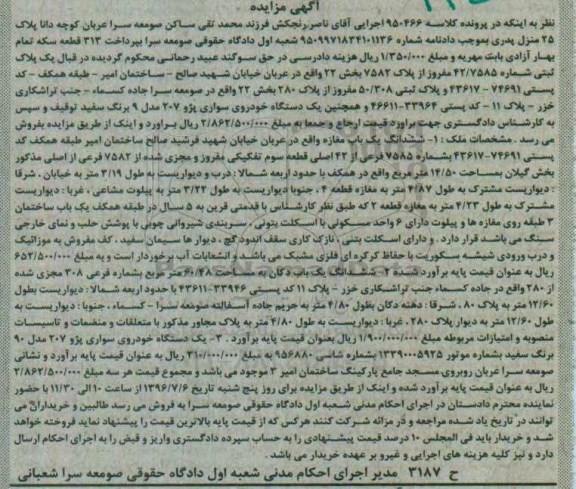 آگهی مزایده
نظر به اینکه در پرونده کلاسه ۹۵۰۴۶۶ اجرایی آقای ناصر رنجکش فرزند محمد تقی ساکن صومعه سرا عربان کوچه دانا پلاک
۲۵ منزل پدری بموجب دادنامه شماره ۹۵۰۹۹۷۱۸۳۴۱۰۱۱۳۶ شعبه اول دادگاه حقوقی صومعه سرا بپرداخت ۳۱۳ قطعه سکه تمام
بهار آزادی بابت مهریه و مبلغ ۱/۳۵۰/۰۰۰ ریال هزینه دادرسی در حق سوگند عبید رحمانی محکوم گردیده در قبال یک پلاک
ثبتی شماره ۴۲/۷۵۸۵ مفروز از پلاک ۷۵۸۲ بخش ۲۲ واقع در عربان خیابان شهید صالح - ساختمان امیر - طبقه همکف - کد
پستی ۷۴۶۹۱ - ۴۳۶۱۷ و پلاک ثبتی ۵۰/۳۰۸ مفروز از پلاک ۲۸۰ بخش ۲۲ واقع در صومعه سرا جاده کسماء - جنب تراشکاری
خزر - پلاک ۱۱ - کد پستی ۳۳۹۶۴-۴۶۶۱۱ و همچنین یک دستگاه خودروی سواری پژو ۲۰۷ مدل ۹۰ برنگ سفید توقیف و سپس
به کارشناس دادگستری جهت برآورد قیمت ارجاع و جمعا به مبلغ ۲/۸۶۲/۵۰۰/۰۰۰ ریال برآورد و اینک از طریق مزایده بفروش
می رسد . مشخصات ملک : ۱- ششدانگ یک باب مغازه واقع در عربان خیابان شهید فرشید صالح ساختمان امیر طبقه همکف کد
پستی ۷۴۶۹۱-۴۳۶۱۷ بشماره ۷۵۸۵ فرعی از ۴۲ اصلی قطعه سوم تفکیکی مفروز و مجزی شده از ۷۵۸۲ فرعی از اصلی مذکور
بخش گیلان بمساحت ۱۴/۵۰ متر مربع واقع در همکف با حدود اربعه شمالا : درب و دیواریست به طول ۳/۱۹ متر به خیابان ، شرقا
: دیواریست مشترک به طول ۴/۸۷ متر به مغازه قطعه ۴ ، جنوبا دیواریست به طول ۳/۲۲ متر به پیلوت مشاعی ، غربا : دیواریست
مشترک به طول ۴/۲۳ متر به مغازه قطعه ۲ که طبق نظر کارشناس با قدمتی قرین به ۵ سال در طبقه همکف یک باب ساختمان
۳ طبقه روی مغازه ها و پیلوت دارای ۶ واحد سکونی با اسکلت بتونی ، سربندی شیروانی چوبی با پوشش حلب و نمای خارجی
سنگ می باشد قرار دارد . و دارای اسکلت بتنی ، نازک کاری سقف اندود گچ ، دیوار ها سیمان سفید ، کف مفروش به موزائیک
و درب ورودی شیشه سکوریت با حفاظ کرکره ای فلزی مشبک می باشد و انشعابات آب برخوردار است و به مبلغ ۶۵۲/۵۰۰/۰۰۰
ریال به عنوان قیمت پایه برآورد شد ۲- ششدانگ یک باب دکان به مساحت ۶۰/۴۸ متر مربع بشماره فرعی ۳۰۸ مجزی شده
از ۲۸۰ واقع در جاده کسماء جنب تراشکاری خزر - پلاک ۱۱ کد پستی ۳۳۹۴۶-۴۳۶۱۱ با حدود اربعه شمالا : دیواریست بطول
۱۲/۶۰ متر به پلاک ۸۰ ، شرقا : دهنه دکان بطول ۴/۸۰ متر به حریم جاده آسفالته صومعه سرا - کسماء ، جنوبا : دیواریست به
طول ۱۲/۶۰ متر به دیوار پلاک ۲۸۰ ، غربا : دیواریست به طول ۴/۸۰ متر به پلاک مجاور مذکور با متعلقات و منضمات و تاسیسات
منصوبه و امتیازات مربوطه مبلغ ۱/۹۰۰/۰۰۰/۰۰۰ ریال بعنوان قیمت پایه برآورد . ۳- یک دستگاه خودروی سواری پژو ۲۰۷ مدل ۹۰
برنگ سفید بشماره موتور ۱۳۳۹۰۰۰۵۹۲۵ بشماره شاسی ۹۵۶۸۸۰ به مبلغ ۳۱۰/۰۰۰/۰۰۰ ریال به عنوان قیمت پایه برآورد و نشانی
صومعه سرا عربان روبروی مسجد جامع پارکینگ ساختمان امیر ۳ موجود می باشد و مجموع قیمت هر سه مبلغ ۲/۸۶۲/۵۰۰/۰۰۰
ریال به عنوان قیمت پایه برآورد شده و اینک از طریق مزایده برای روز پنج شنبه تاریخ ۱۳۹۶/۷/۶ از ساعت ۱۰ الی ۱۱/۳۰ با حضور
نماینده محترم دادستان در اجرای احکام مدنی شعبه اول دادگاه حقوقی صومعه سرا به فروش می رسد طالبین و خریداران می
توانند در تاریخ یاد شده مراجعه و در مزائه شرکت کنند هرکس که از قیمت پایه بالاترین قیمت را پیشنهاد نماید فروخته خواهد
شد و خریدار باید فی المجلس ۱۰ درصد قیمت پیشنهادی را به حساب سپرده دادگستری واریز و قبض را به اجرای احکام ارسال
دارد و نیز کلیه هزینه های اجرایی و غیرو بر عهده خریدار می باشد .
ح ۳۱۸۷ مدیر اجرای احکام مدنی شعبه اول دادگاه حقوقی صومعه سرا شعبانی